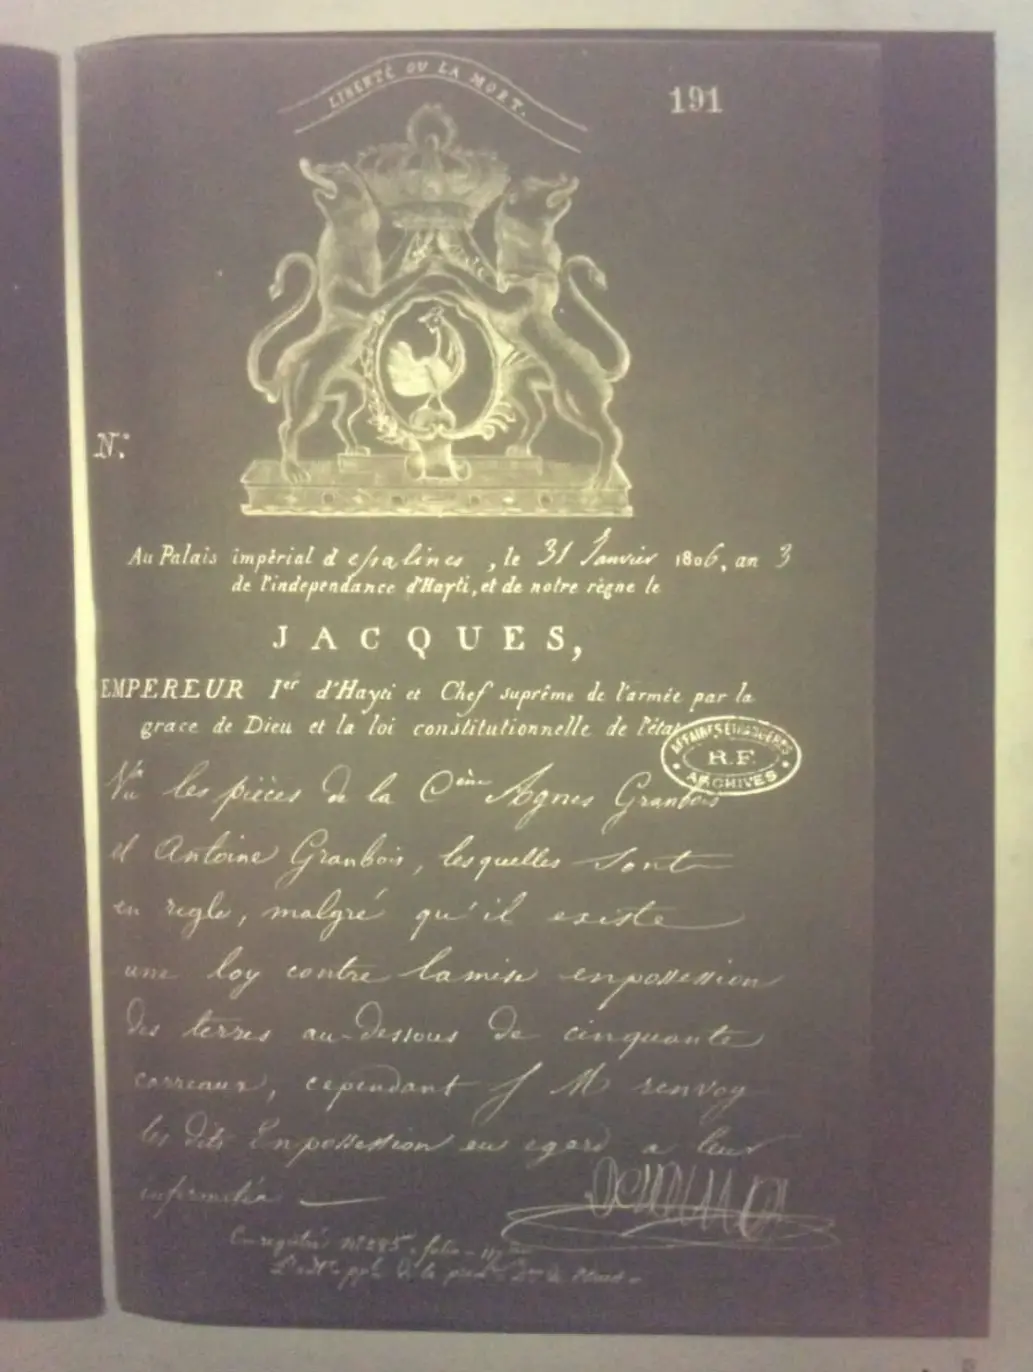 LIBERTÉ OU LA MORT.
191
N.°
Au Palais impérial d essalines, le 31 Janvier 1806, an 3
de l'independance d'Hayti, et de notre règne le
JACQUES,
EMPEREUR Ier d'Hayti et Chef suprême de l'armée par la
grace de Dieu et la loi constitutionnelle de l'état
AFFAIRES ETRANGERES
R.F.
ARCHIVES
Vu les pièces de la Cème Agnes Granbois
et Antoine Granbois, lesquelles sont
en regle, malgré qu'il existe
une loy contre lamise enpossession
des terres au-dessous de cinquante
carreaux, cependant S M renvoy
les dits Enpossession eu egard a leur
infirmités
Enregistré N° 285, folio